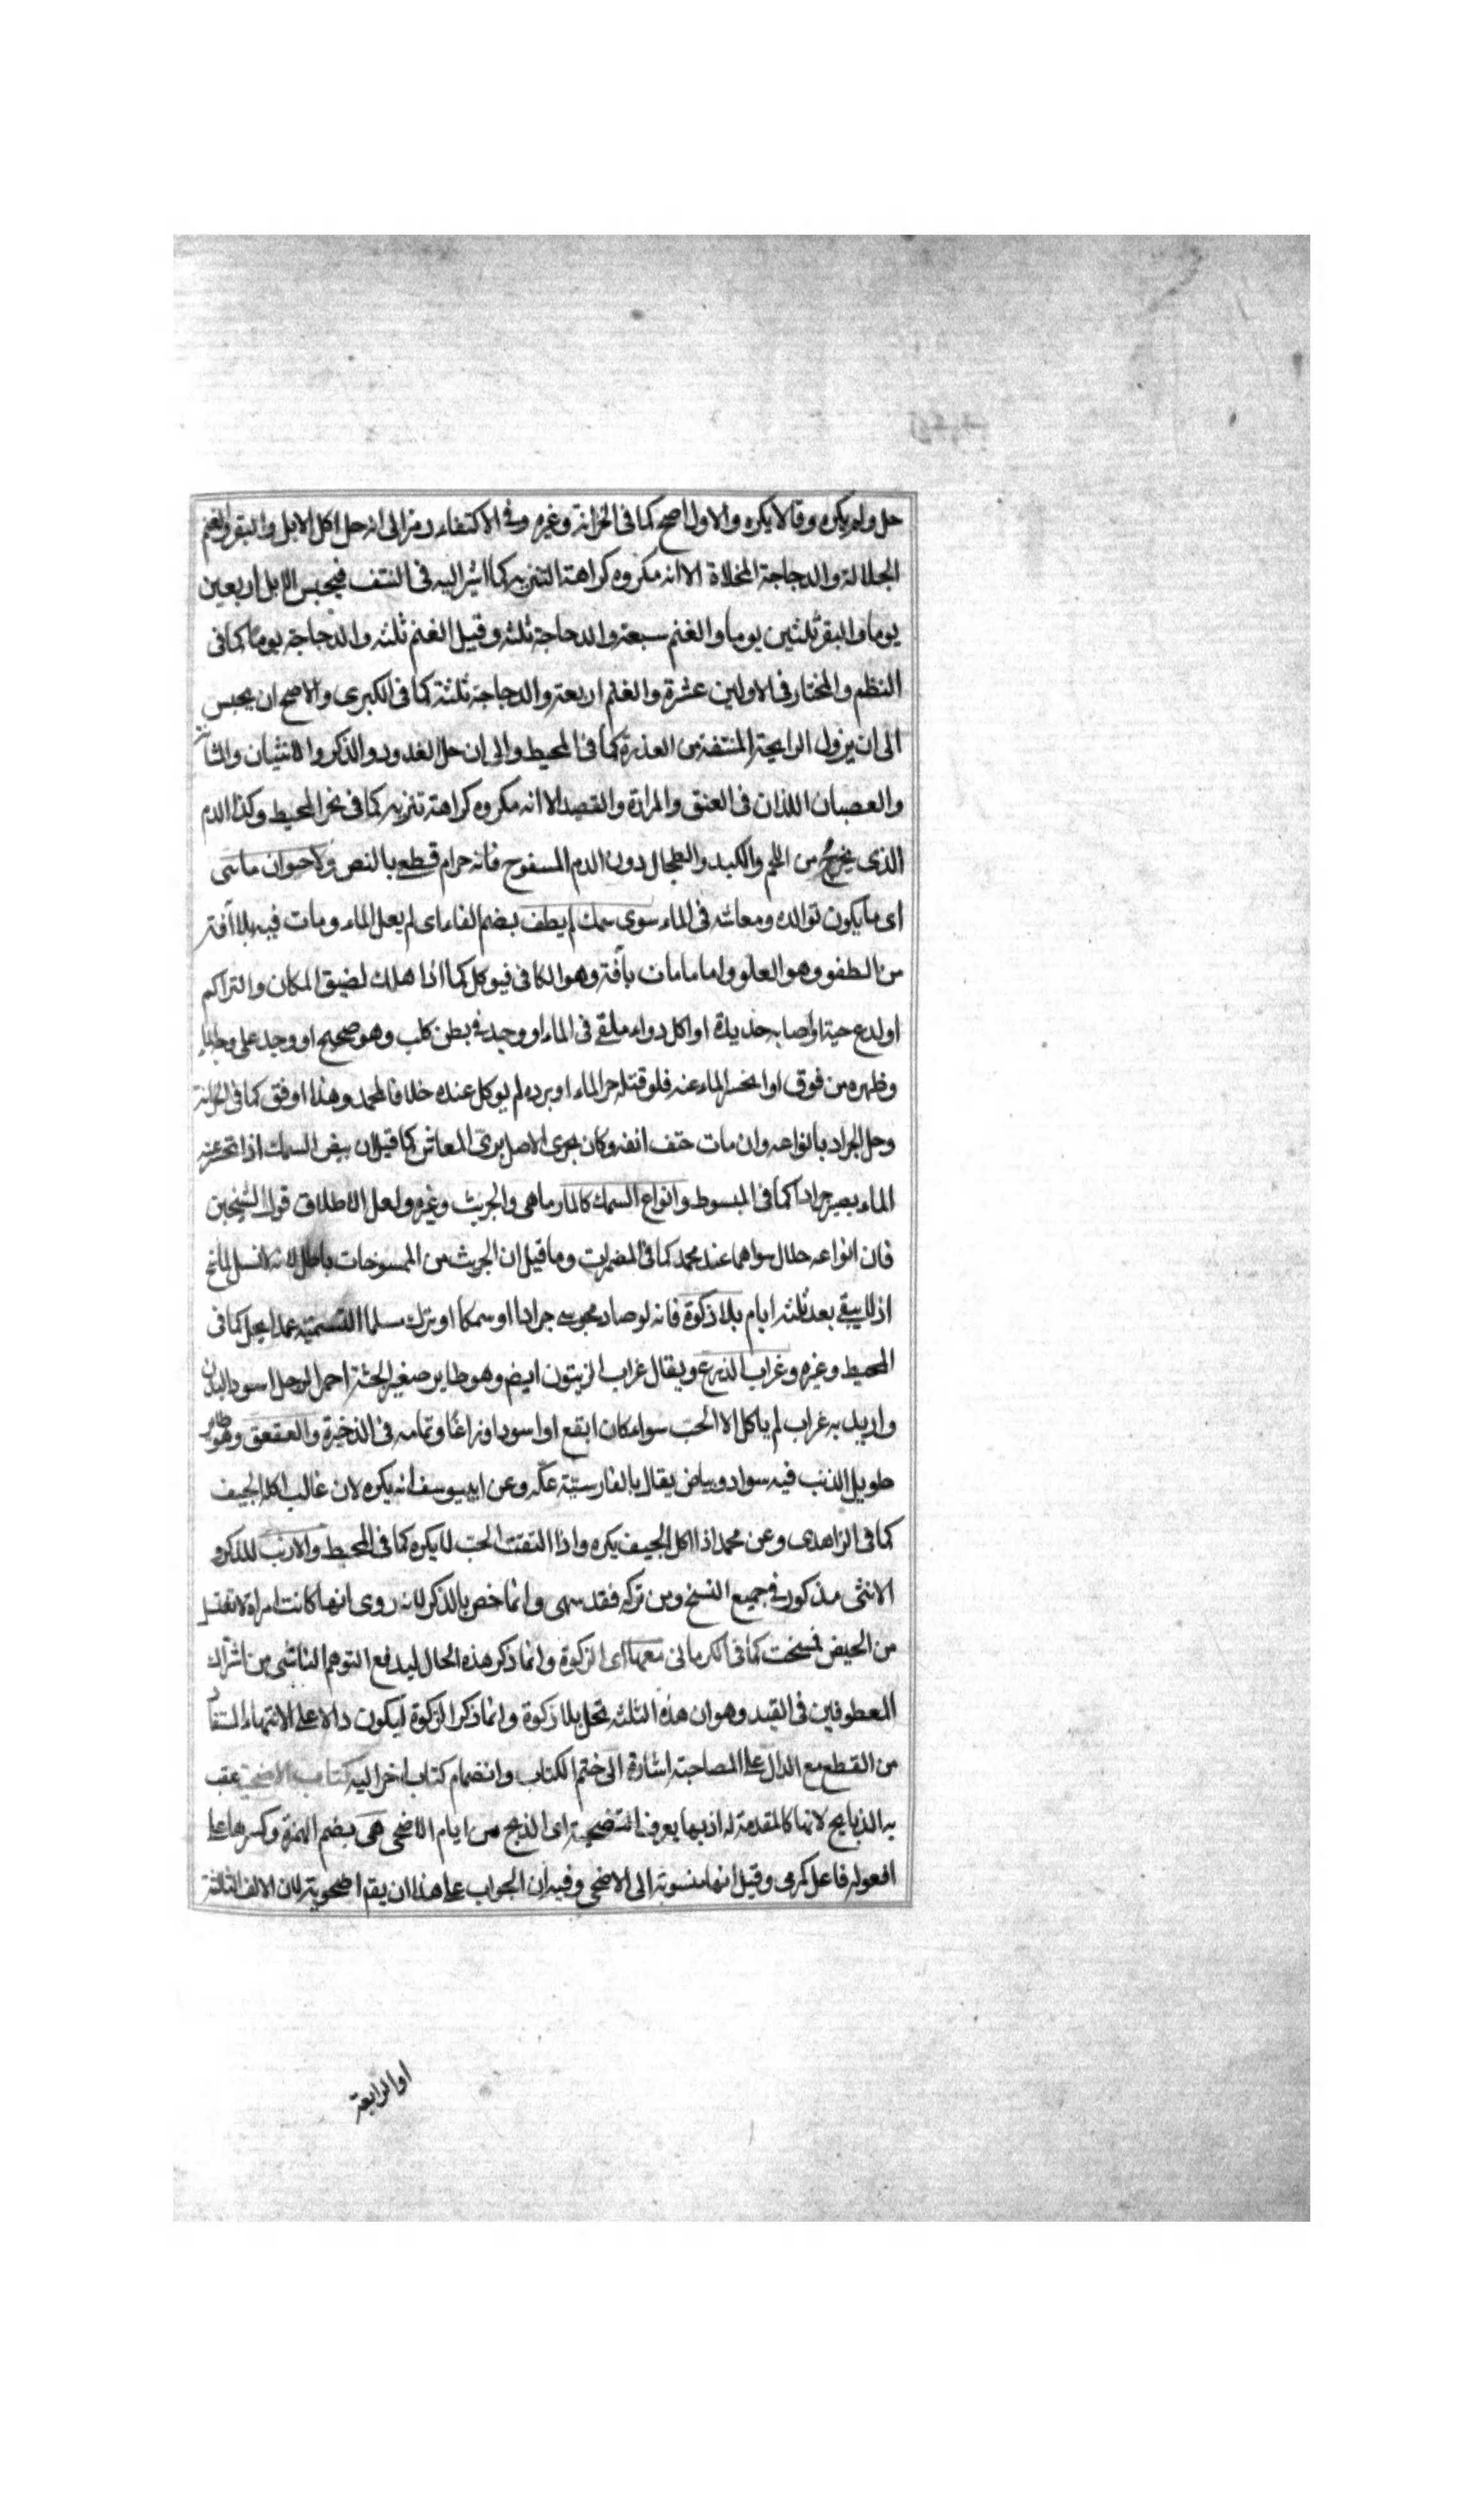 حل ولم يكره وقالا يكره والاول اصح كما فى الخزانة وغيره وفى الاكتفاء رمز الى انه حل اكل الابل والبقر والغنم
الجلالة والدجاجة المخلاة الا انه مكروه كراهة التنزيه كما اشير اليه فى النتف فيحبس الابل اربعين
يوما والبقر ثلثين يوما والغنم سبعة والدجاجة ثلثه وقيل الغنم ثلثه والدجاجة يوما كما فى
النظم والمختار فى الاولين عشرة والغنم اربعة والدجاجة ثلثة كما فى الكبرى والاصح ان يحبس
الى ان يزول الرايحة المنتفة من العذرة كما فى المحيط والى ان حل الغدود والذكر والانثيان والمثانة
والعصبان اللذان فى العنق والمرارة والقصيد الا انه مكروه كراهة تنزيه كما فى نحر المحيط وكذا الدم
الذى يخرج من اللحم والكبد والطحال دون الدم المسفوح فانه حرام قطع بالنص ولا حيوان مائى
اى ما يكون توالده ومعاشه فى الماء سوى سمك لم يطف بضم الفاء اى لم يعل الماء ومات فيه بلا آفة
من الطفو وهو العلو واما ما مات بآفة وهو الكافى فيوكل كما اذا هلك لضيق المكان والتراكم
او لدغ حية او اصابه حديدة او اكل دواء ملقے فى الماء او وجد فے بطن كلب وهو صحيح او وجد على وجه الماء
وظهره من فوق او انحسر الماء عنه فلو قتله حر الماء او برده لم يوكل عنده خلافا لمحمد وهذا اوفق كما فى الخزانة
وحل الجراد بانواعه وان مات حتف انفه وكان بحرى الاصل برى المعاش كما قيل ان بيض السمك اذا انحسر عنه
الماء يصير جرادا كما فى المبسوط وانواع السمك كالمارماهى والجريث وغيره ولعل الاطلاق قول الشيخين
فان انواعه حلال سواهما عند محمد كما فى المضمرات وما قيل ان الجريث من الممسوخات باطل لانه لا نسل لما مسخ
اذ لا يبقے بعد ثلثه ايام بلا ذكوة فانه لو صاد مجوسے جرادا او سمكا او ترك مسلما التسمية عمدا يحل كما فى
المحيط وغيره وغراب الزرع ويقال غراب الزيتون ايضا وهو طاير صغير الجثة احمر الرجل اسود البدن
واريد به غراب لم ياكل الا الحب سواء كان ابقع او اسود او زاغا وتمامه فى الذخيرة والعقعق وهو طاير
طويل الذنب فيه سواد وبياض يقال بالفارسية عكه وعن ابى يوسف انه يكره لان غالب اكله الجيف
كما فى الزاهدى وعن محمد اذا اكل الجيف يكره واذا التقت الحب لا يكره كما فى المحيط والارنب للذكر و
الانثى مذكور فے جميع النسخ ومن تركه فقد سهى وانما خص بالذكر لانه روى انها كانت امراة لا تغتسل
من الحيض فمسخت كما فى الكرمانى معها اى الزكوة وانما ذكر هذه الحال ليدفع التوهم الناشى من اشتراك
المعطوفين فى القيد وهو ان هذه الثلثه تحل بلا ذكوة وانما ذكر الزكوة ليكون دالا على الانتهاء المستفاد
من القطع مع الدال على المصاحبة اشارة الى ختم الكتاب وانضمام كتاب اخر اليه كتاب الاضحية عقب
به الذبايح لانها كالمقدمة له اذ بها يعرف التضحية اى الذبح من ايام الاضحى هى بضم الهمزة وكسرها على
افعوله فاعل كمرمى وقيل انها منسوبة الى الاضحى وفيه ان الجواب على هذا ان يقم اضحوية لان الالف الثالثة
او الرابعة